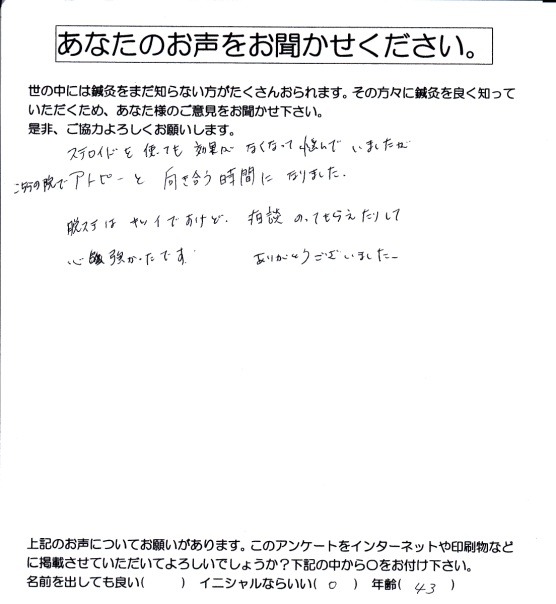 あなたのお声をお聞かせください。
世の中には鍼灸をまだ知らない方がたくさんおられます。その方々に鍼灸を良く知って
いただくため、あなた様のご意見をお聞かせ下さい。
是非、ご協力よろしくお願いします。
ステロイドを使っても効果がなくなって悩んでいましたが
こちらの院でアトピーと向き合う時間になりました。
脱ステはキツイですけど、相談のってもらえたりして
心強かったです ありがとうございましたー
上記のお声についてお願いがあります。このアンケートをインターネットや印刷物など
に掲載させていただいてよろしいでしょうか？下記の中から○をお付け下さい。
名前を出しても良い( ) イニシャルならいい( ○ ) 年齢( 43 )